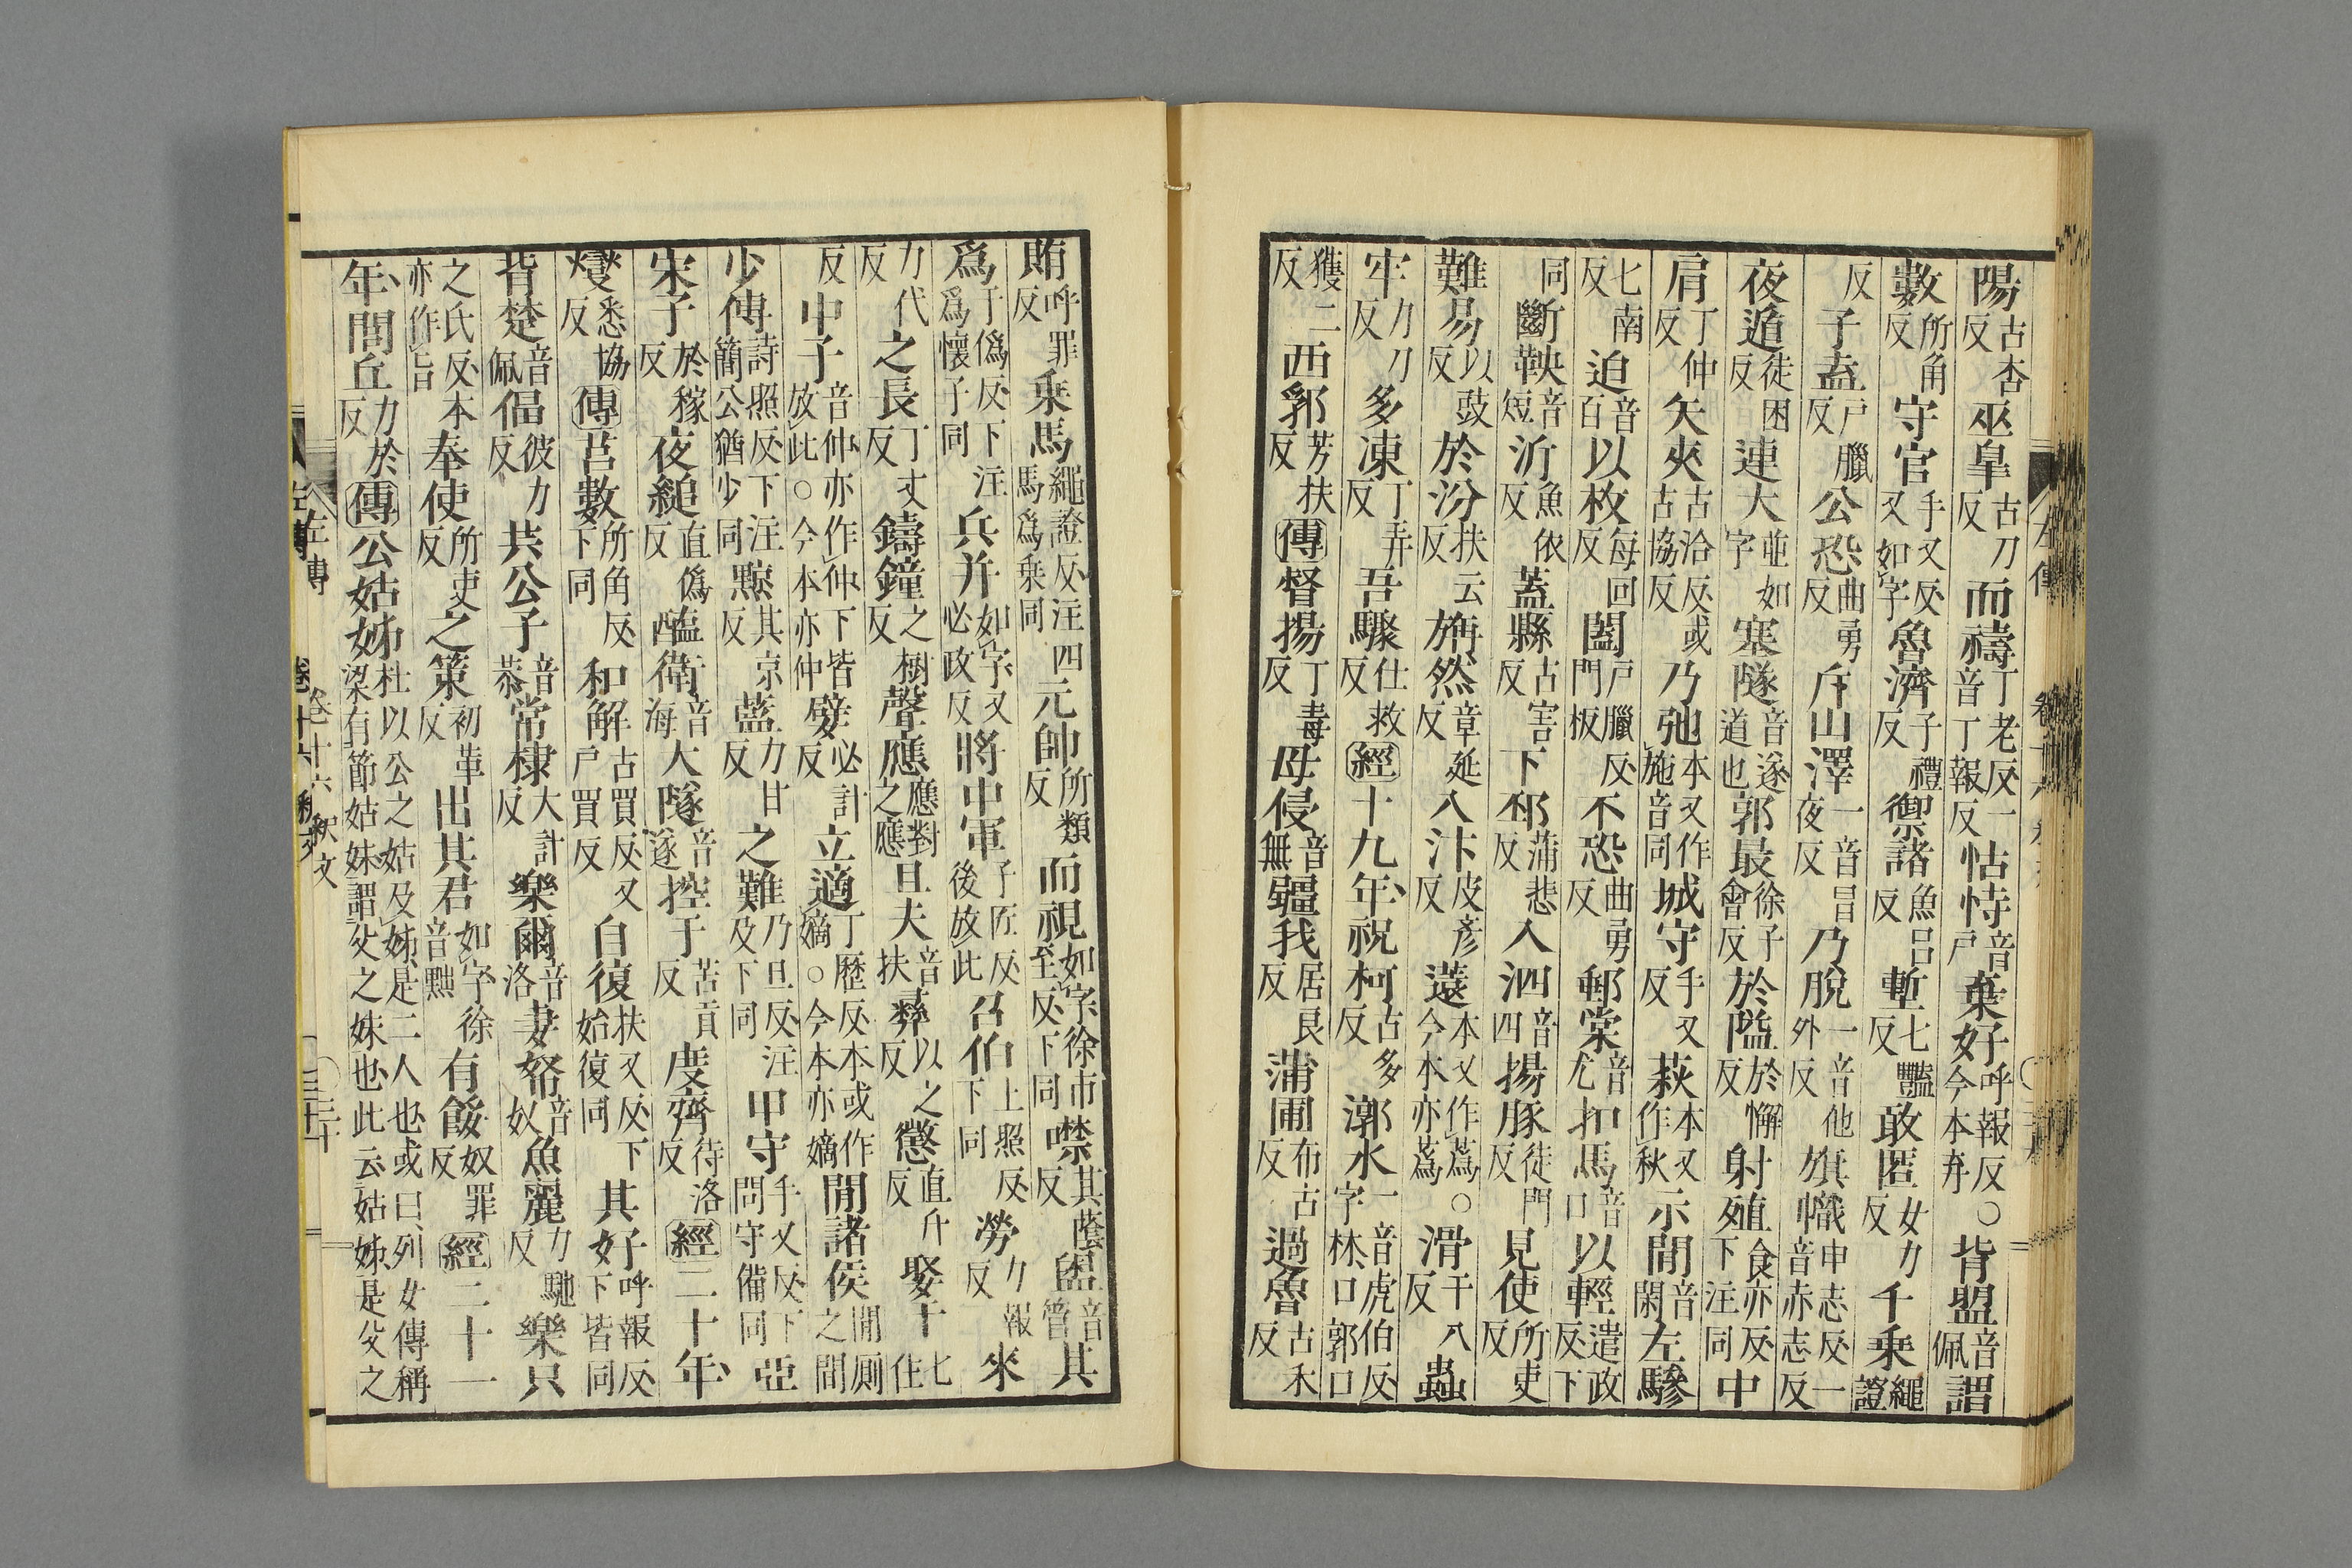 陽古杏反巫皐古刀反而禱丁老反一音丁報反怙恃音戶棄好呼報反○今本弃背盟音佩謂
數所角反守官手又反又如字魯濟子禮反禦諸魚呂反塹七豔反敢匿女力反千乘繩證
反子盍戶臘反公恐曲勇反斥山澤一音昌夜反乃脫一音他外反旗幟申志反一音赤志反
夜遁徒困反連大並如字塞隧音遂道也郭最徐子會反於隘於懈反射殖食亦反下注同中
肩丁仲反矢夾古洽反或古協反乃弛本又作施音同城守手又反萩本又作秋示閒音閑左驂
七南反迫音百以枚每回反闔戶臘反門板不恐曲勇反郵棠音尤扣馬音口以輕遣政反下
同斷鞅音短沂魚依反蓋縣古害反下邳蒲悲反入泗音四揚豚徒門反見使所吏反
難易以豉反於汾扶云反旃然章延反入汴皮彥反薳本又作蒍○今本亦蒍滑于八反蟲
牢力刀反多凍丁弄反吾驟仕救反經十九年祝柯古多反漷水一音虎伯反字林口郭口
獲二反西郛芳扶反傳督揚丁毒反毋侵音無疆我居良反蒲圃布古反過魯古禾反
左傳
賄呼罪反乗馬繩證反注四馬爲乗同元帥所類反而視如字徐市至反下同噤其蔭反盥音管其
爲于僞反下注爲懷子同兵并如字又必政反將中軍子匠反後放此召伯上照反下同勞力報反來
力代反之長丁丈反鑄鐘之樹反聲應應對之應旦夫音扶彝以之反懲直升反娶七住
反中子音仲亦作仲下皆放此○今本亦仲嬖必計反立適丁歷反本或作嫡○今本亦嫡閒諸侯閒厠之間
少傳詩照反下注簡公猶少同黥其京反藍力甘反之難乃旦反注及下同甲守手又反下問守備同亞
宋子於稼反夜縋直僞反醢衛音海大隧音遂控于苦貢反度齊待洛反經二十年
燮悉協反傳莒數所角反下同和解古買反又戶買反自復扶又反下始復同其好呼報反下皆同
背楚音佩偪彼力反共公子音恭常棣大計反樂爾音洛妻帑音奴魚麗力馳反樂只
之氏反本亦作旨奉使所吏反之策初革反出其君如字徐音黜有餒奴罪反經二十一
年閭丘力於反傳公姑姊杜以公之姑及姊是二人也或曰列女傳稱梁有節姑妹謂父之妹也此云姑姊是父之
左傳 卷十六 釈文